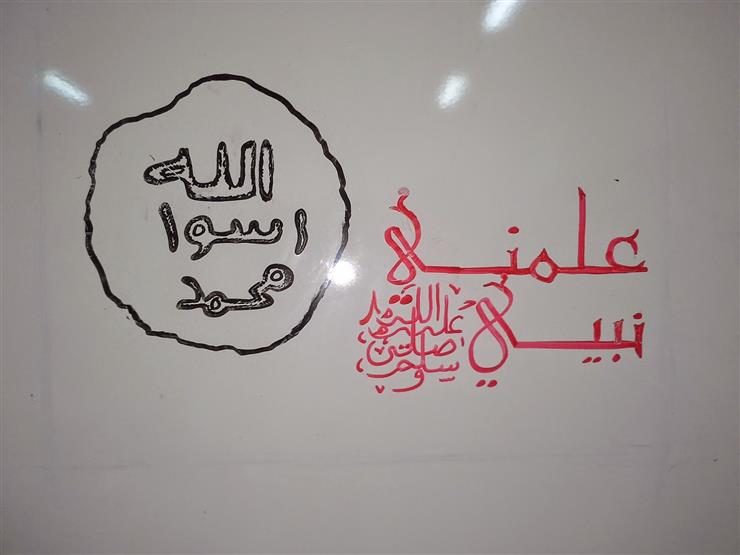 الله
رسول
محمد
علمني
نبيي صلى الله عليه وسلم